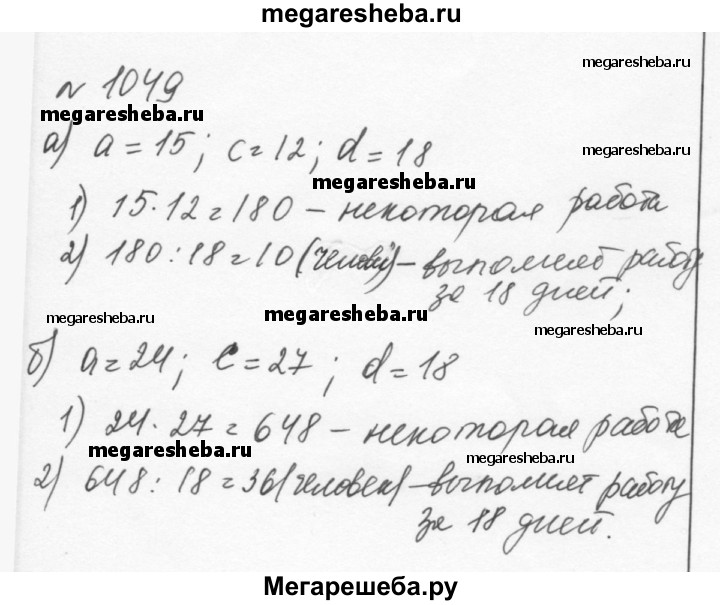 megaresheba.ru
№ 1049
megaresheba.ru
megaresheba.ru
а) a = 15; c = 12; d = 18
megaresheba.ru
megaresheba.ru
1) 15 · 12 = 180 – некоторая работа
2) 180 : 18 = 10 (человек) – выполнят работу
за 18 дней;
megaresheba.ru
megaresheba.ru
megaresheba.ru
б) a = 24; c = 27; d = 18
1) 24 · 27 = 648 – некоторая работа
megaresheba.ru
megaresheba.ru
2) 648 : 18 = 36 (человек) – выполнят работу
за 18 дней.
Мегарешеба.ру